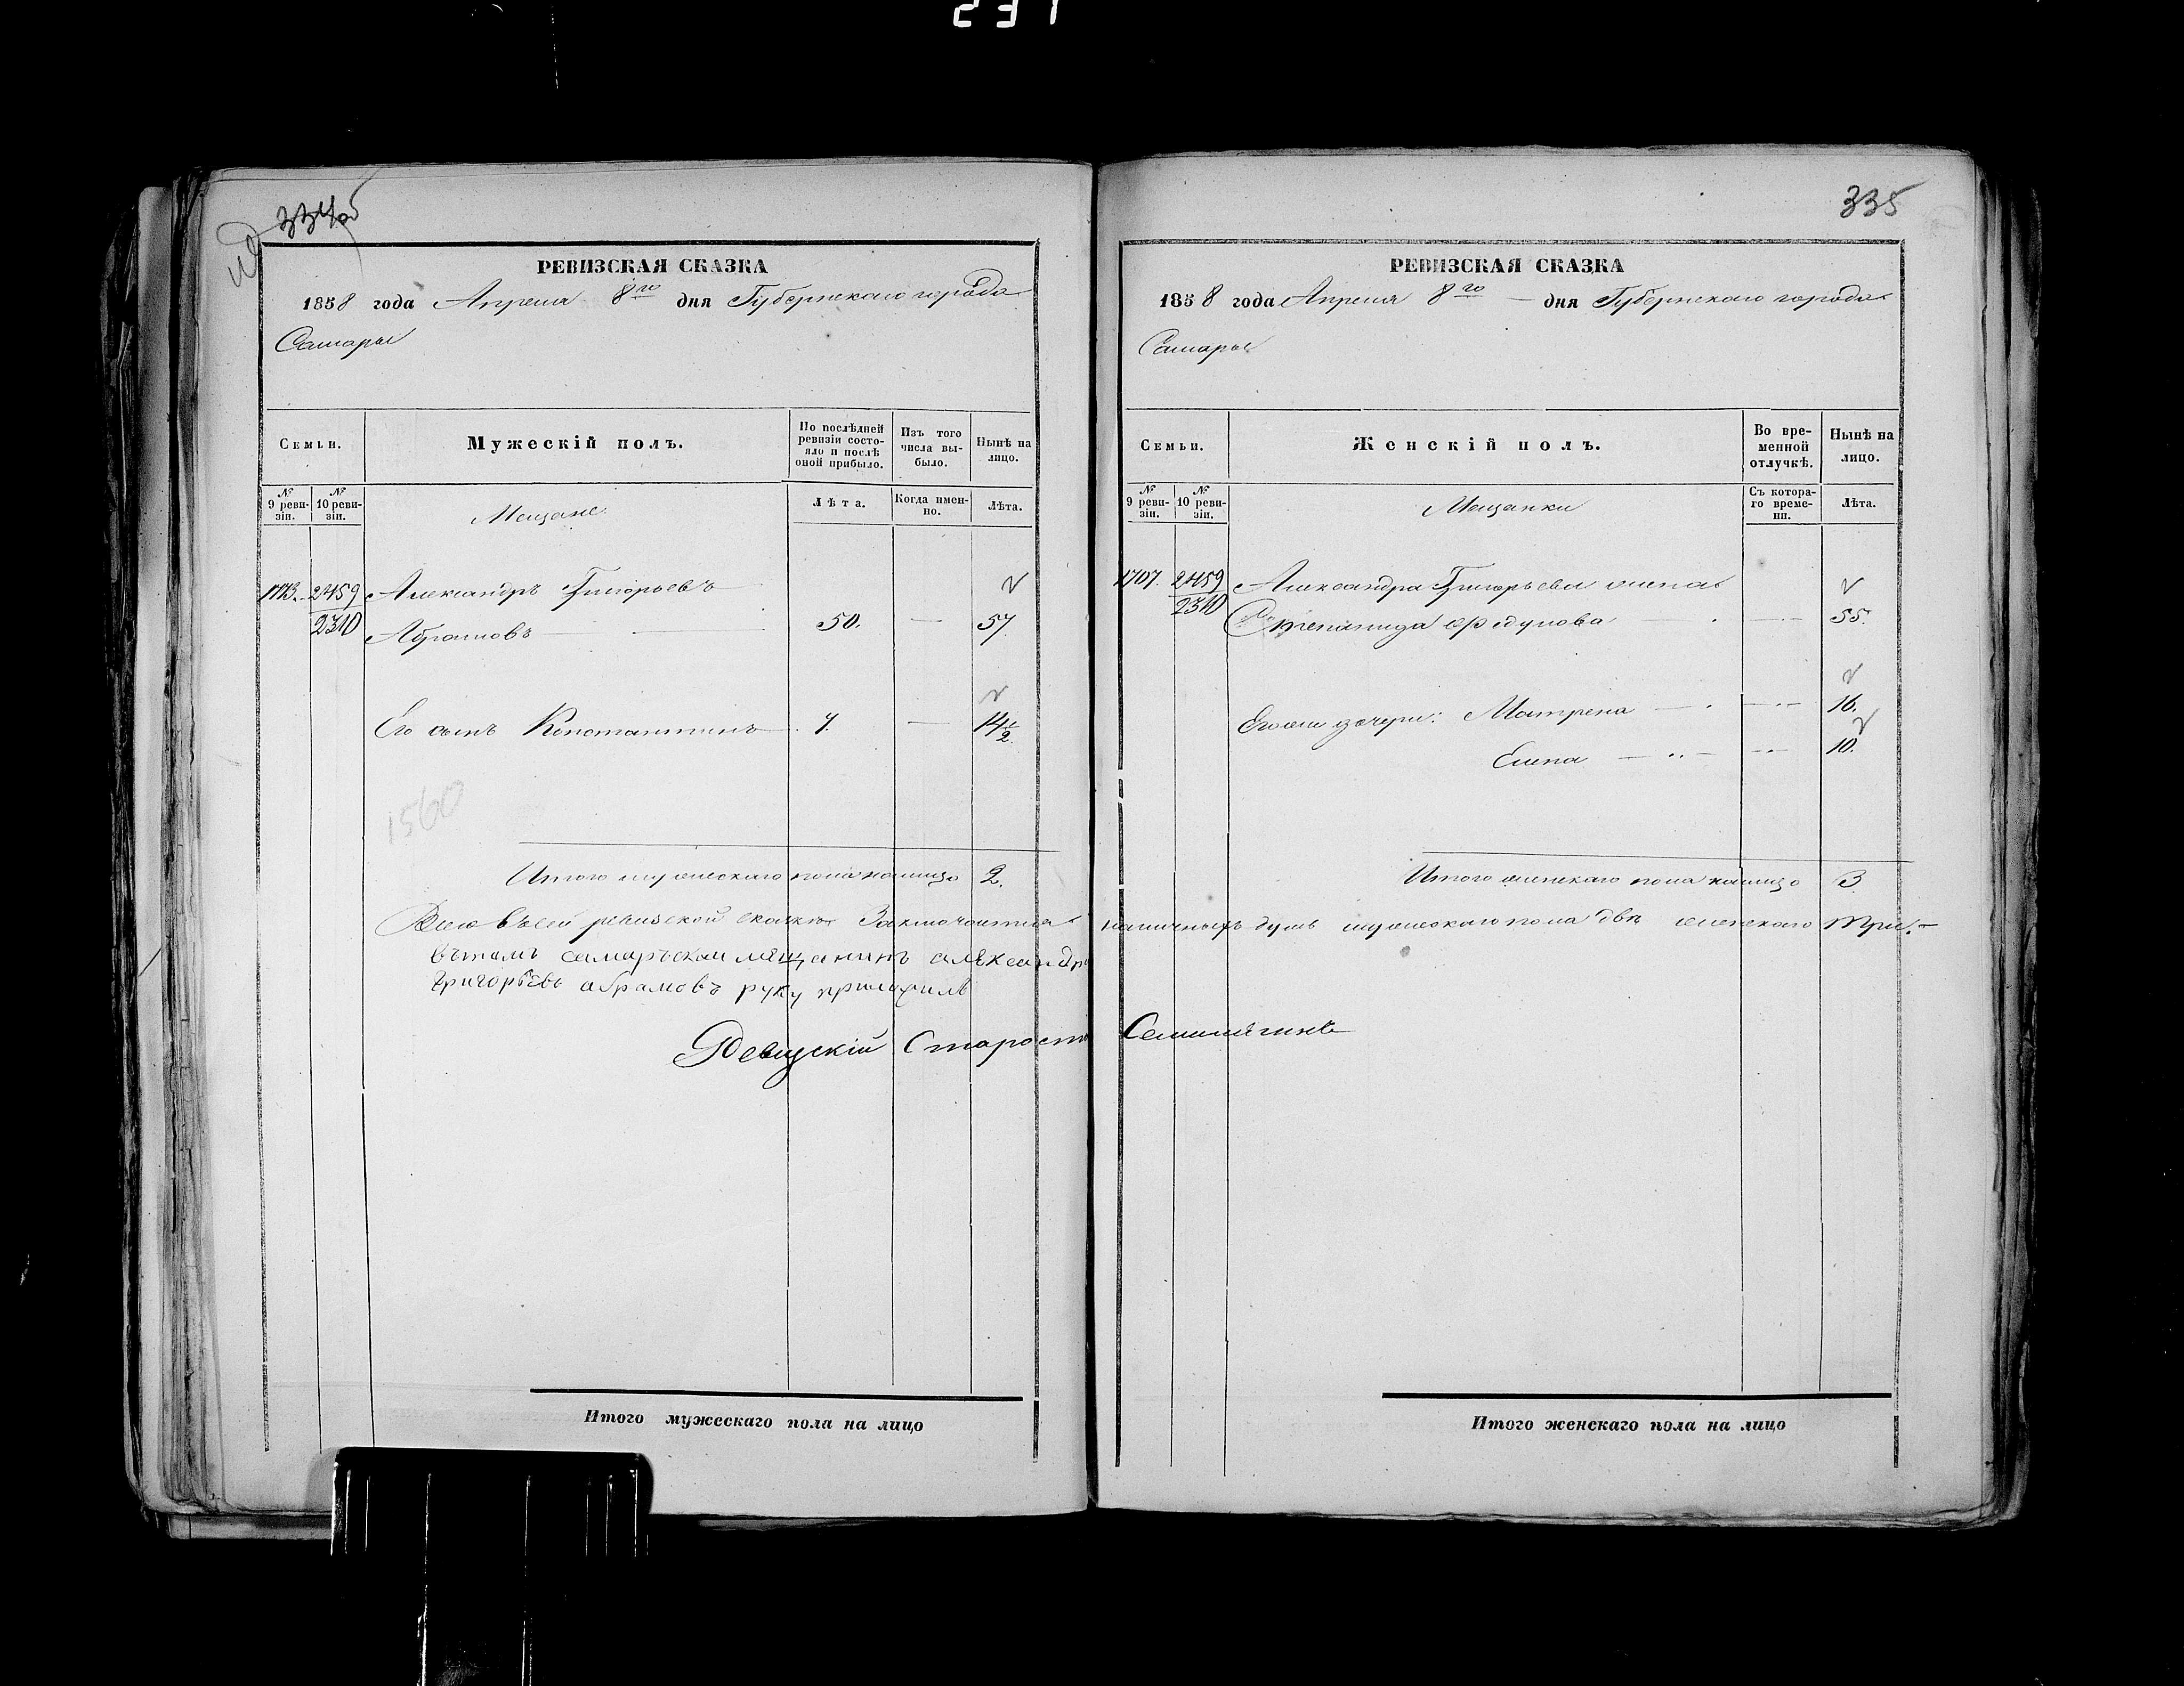 231
334об
РЕВИЗСКАЯ СКАЗКА
1858 года Апреля 8го дня Губернскаго города
Самары
Семьи.
Мужескій полъ.
По послѣдней ревизіи состояло и послѣ оной прибыло.
Изъ того числа выбыло.
Нынѣ на лицо.
№ 9 ревизіи.
№ 10 ревизіи.
Мещане
Лѣта.
Когда именно.
Лѣта.
1713. 2459 Александръ Григорьевъ
2310 Абрамовъ — 50. — 57.
Его сынъ Константинъ 7. — 14 1/2.
1560
Итого мужескаго пола налицо 2.
Всего въ сей ревизской сказкѣ Заключается наличныхъ душъ мужескаго пола двѣ женскаго три. —
вътомъ самарскаи мещанинъ александръ
григорьевъ абрамовъ руку приложилъ
Ревизскій Староста
Итого мужескаго пола на лицо
335
РЕВИЗСКАЯ СКАЗКА
1858 года Апреля 8го — дня Губернскаго города
Самары
Семьи.
Женскій полъ.
Во временной отлучкѣ.
Нынѣ на лицо.
№ 9 ревизіи.
№ 10 ревизіи.
Мещанки
Съ котораго времени.
Лѣта.
1707. 2459 Александра Григорьева жена
2310 Степанида Федулова — 55.
Его же дочери: Матрена — 16.
Елена — 10.
Итого женскаго пола налицо 3
Итого женскаго пола на лицо